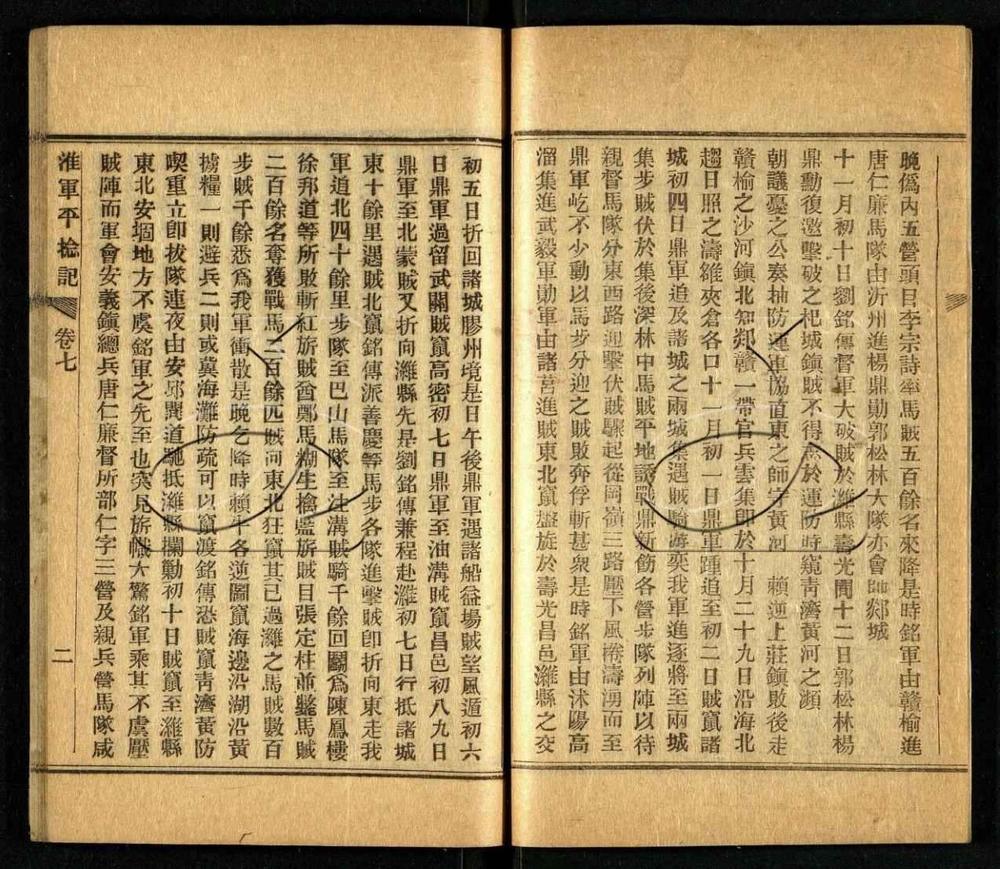 晚僞內五營頭目李宗詩率馬賊五百餘名來降是時銘軍由贛榆進
唐仁廉馬隊由沂州進楊鼎勛郭松林大隊亦會師郯城
十一月初十日劉銘傳督軍大破賊於濰縣壽光間十二日郭松林楊
鼎勳復邀擊破之杞城鎮賊不得志於運防時窺靑濟黃河之瀕
朝議憂之公奏抽防運軍協直東之師守黃河 賴逆上莊鎮敗後走
贛榆之沙河鎮北知郯贛一帶官兵雲集卽於十月二十九日沿海北
趨日照之濤雒夾倉各口十一月初一日鼎軍踵追至初二日賊竄諸
城初四日鼎軍追及諸城之兩城集遇賊騎游奕我軍進逐將至兩城
集步賊伏於集後深林中馬賊平地誘戰鼎新飭各營步隊列陣以待
親督馬隊分東西路迎擊伏賊驟起從岡嶺三路壓下風捲濤湧而至
鼎軍屹不少動以馬步分迎之賊敗奔俘斬甚衆是時銘軍由沭陽高
溜集進武毅軍勛軍由諸莒進賊東北竄盤旋於壽光昌邑濰縣之交
初五日折回諸城膠州境是日午後鼎軍遇諸船益場賊望風遁初六
日鼎軍過留武關賊竄高密初七日鼎軍至油溝賊竄昌邑初八九日
鼎軍至北蒙賊又折向濰縣先是劉銘傳兼程赴濰初七日行抵諸城
東十餘里遇賊北竄銘傳派善慶等馬步各隊進擊賊卽折向東走我
軍追北四十餘里步隊至巴山馬隊至注溝賊騎千餘回鬭爲陳鳳樓
徐邦道等所敗斬紅旂賊酋鄭馬糊生擒藍旂賊目張定柱並斃馬賊
二百餘名奪獲戰馬二百餘匹賊向東北狂竄其已過濰之馬賊數百
步賊千餘悉爲我軍衝散是晚乞降時賴牛各逆圖竄海邊沿湖沿黃
擄糧一則避兵二則或冀海灘防疏可以竄渡銘傳恐賊竄靑濟黃防
喫重立卽拔隊連夜由安邱間道馳抵濰縣攔勦初十日賊竄至濰縣
東北安堌地方不虞銘軍之先至也突見旂幟大驚銘軍乘其不虞壓
賊陣而軍會安義鎮總兵唐仁廉督所部仁字三營及親兵營馬隊咸
淮軍平捻記 卷七 二